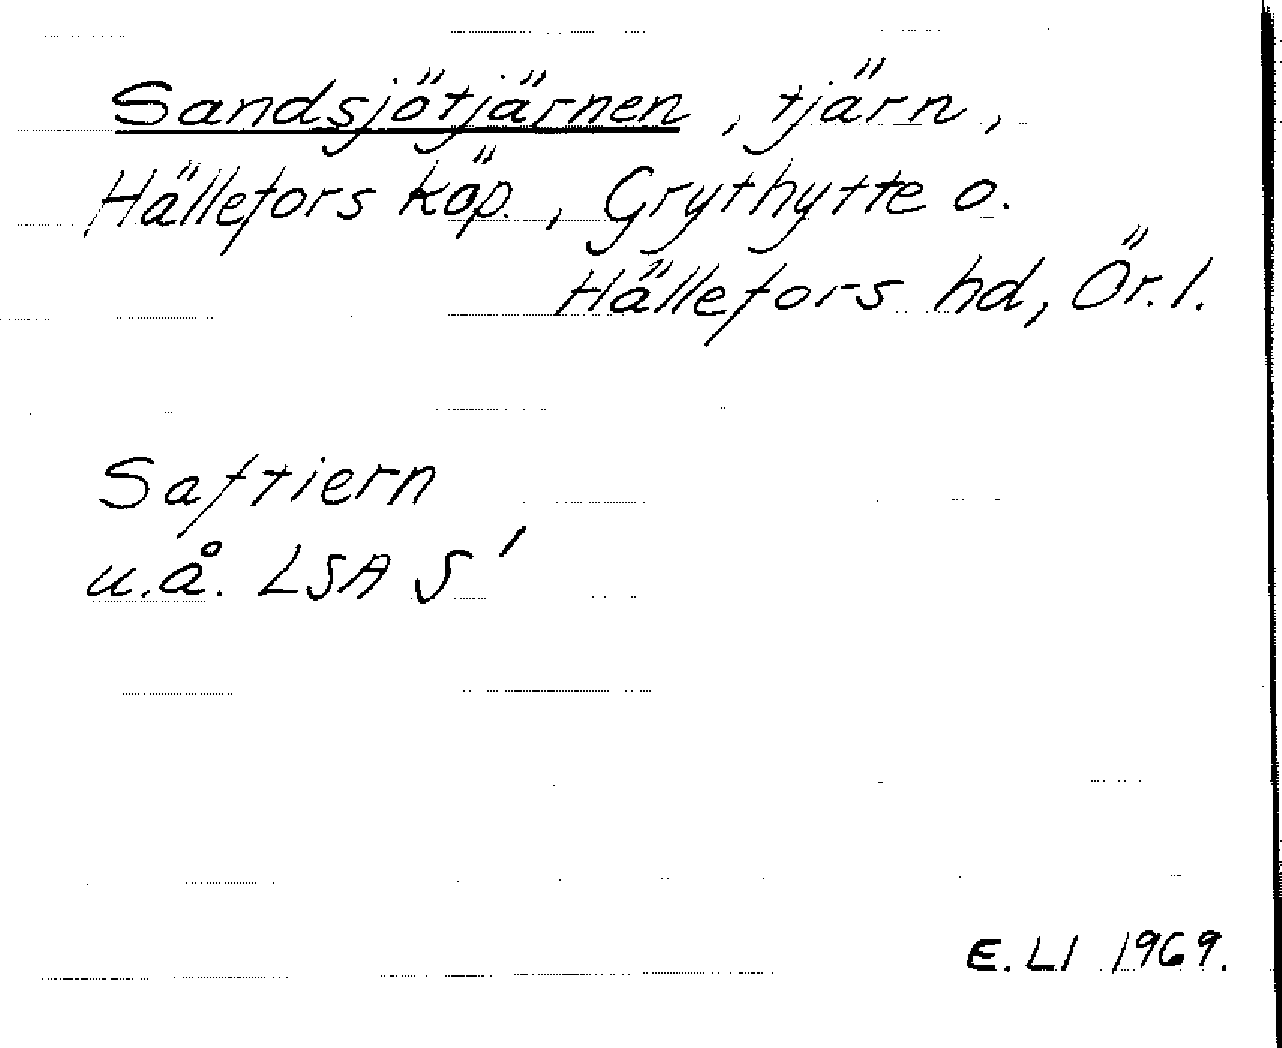 Sandsjötjärnen, tjärn,
Hällefors köp., Grythytte o.
Hällefors hd, Ör. l.
Saftiern
u.å. LSA S'
E. LI 1969.